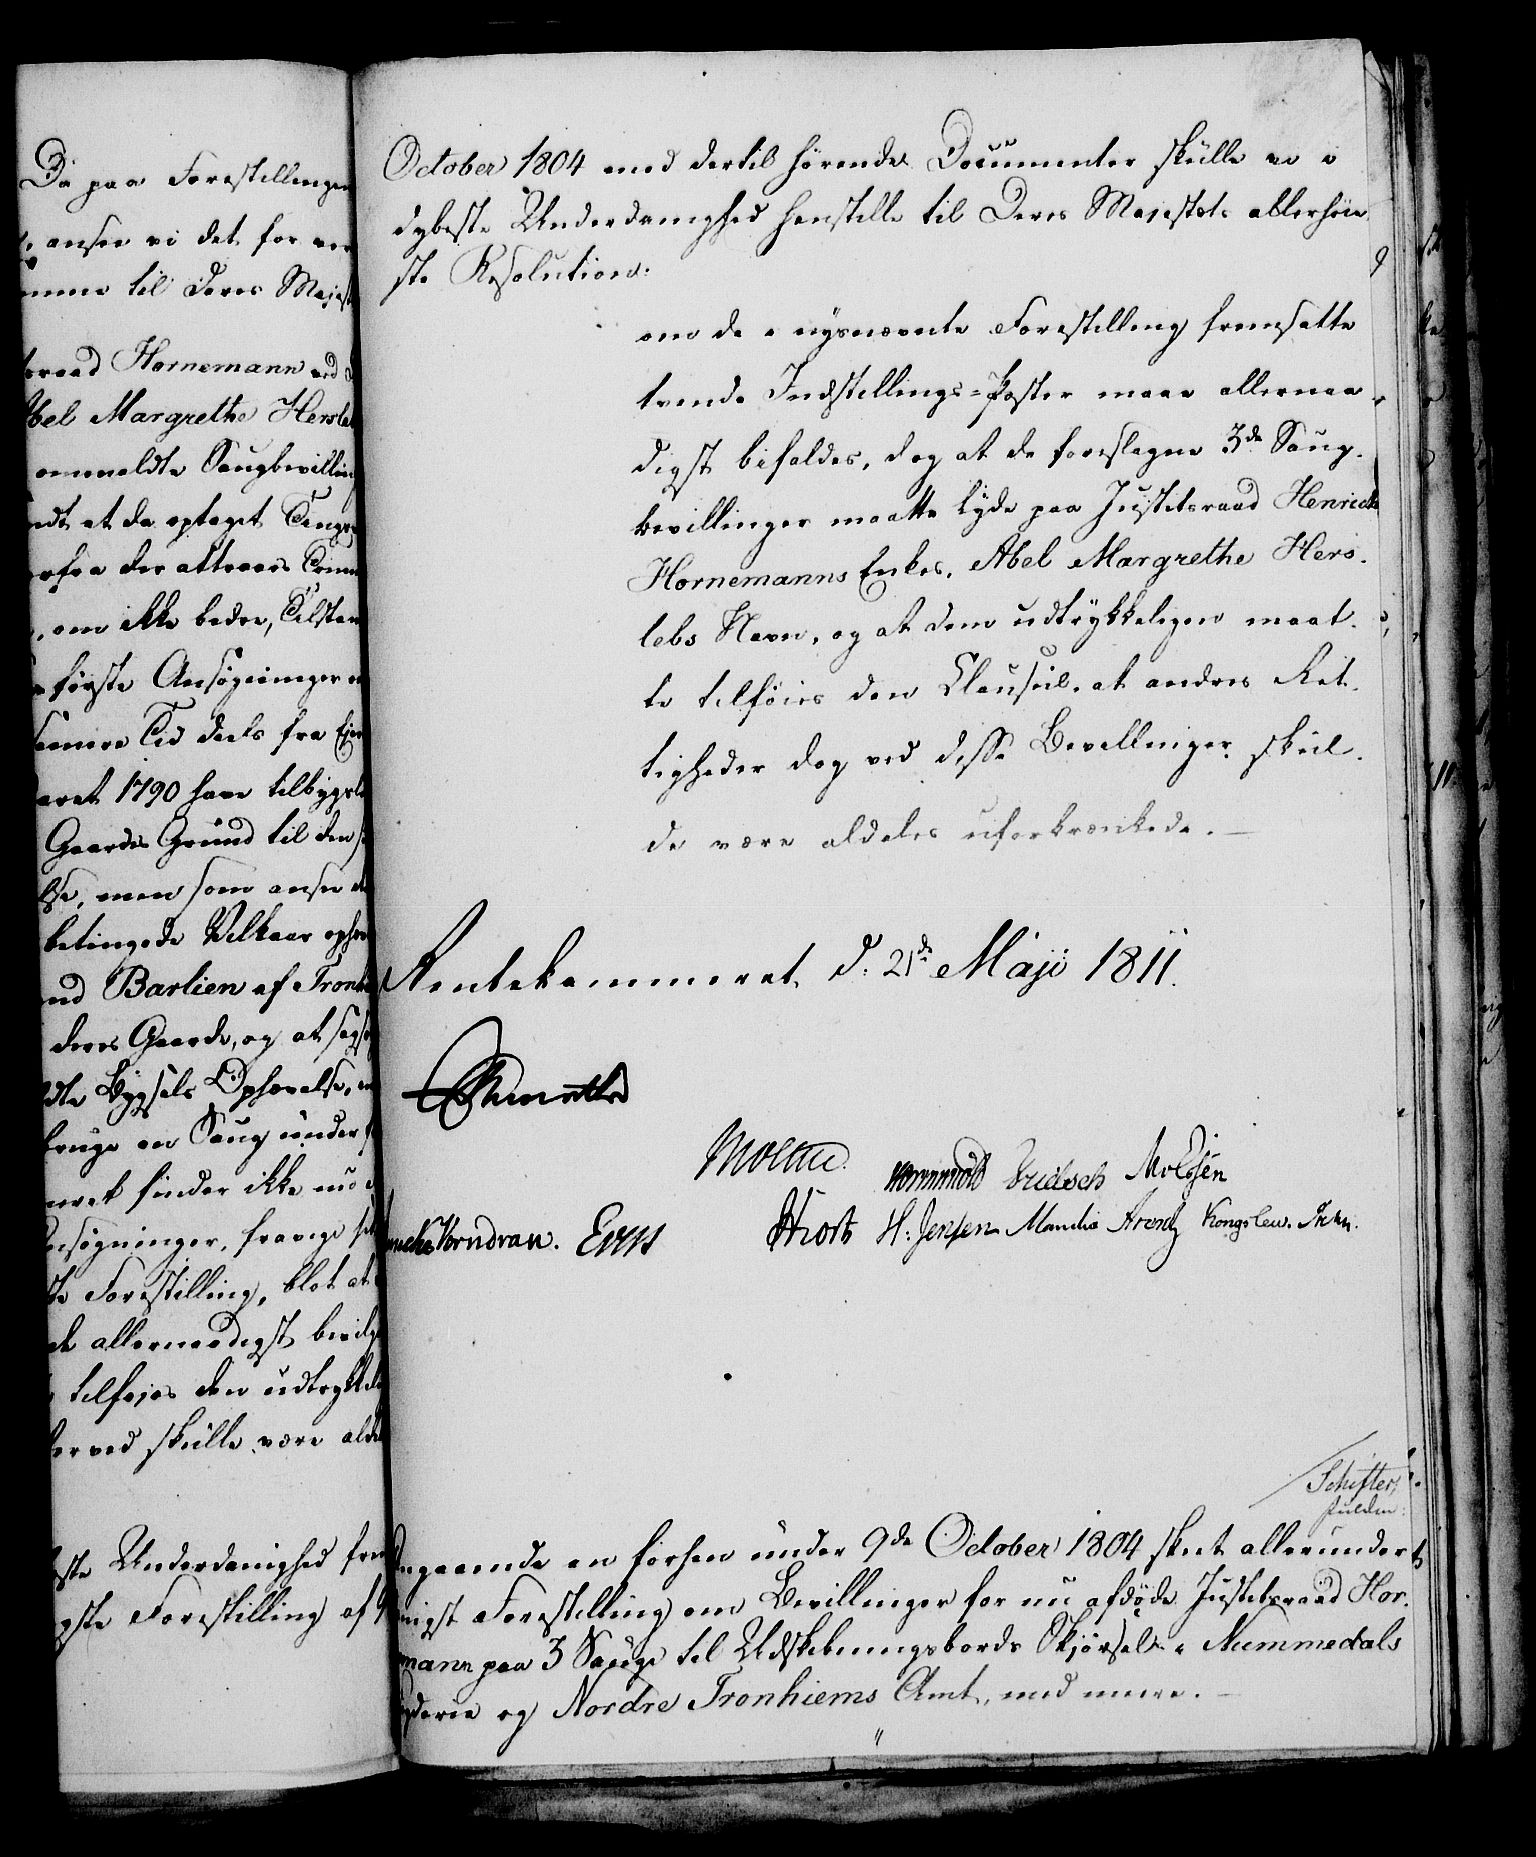 Da paa Forestillingen
ansee vi det for
til Deres Majest
raad Hornemann ved
Abel Margrethe Hersle
ommeldte Saugbevilling
at de optaget
fra der attraaes
om ikke bedre, Tilstan
første Ansøgninger
Tid deels fra Ejer
aaret 1790 have tilbygslet
Gaardes Grund til den
men som ansee
betingede Vilkaar ophøre
Barlien af Tronhiem
deres Gaarde, og at
Bygsels Ophævelse,
bruge en Saug under
finder ikke nu
Ansøgninger, fravige
Forestilling, blot at
allernaadigst bevilge
tilføjes den udtrykkelig
derved skulle være aldeles
Underdanighed frem
Forestilling af 9
October 1804 med dertil hørende Documenter skulle vi i
dybeste Underdanighed henstille til Deres Majestæts allerhøie
ste Resolution:
om de i nysnævnte Forestilling fremsatte
trende Indstillings-Poster maae allernaa-
digst bifaldes, dog at de foreslagne 3de Saug-
bevillinger maatte lyde paa Justitsraad Henrick
Hornemanns Enkes, Abel Margrethe Hers-
lebs Navn, og at dem udtrykkeligen maat-
te tilføies den Clausul, at andres Ret-
tigheder dog ved disse Bevillinger skul-
de være aldeles uforkrænkede. —
Rentekammeret, d. 21de Maji 1811.
Moltke.
Wormskiold Fridsch Mölssen
Vorndran. Evers Hiort H. Jensen Mandix Arentz Kongslew.
Schifter,
fuldm:
Angaaende en forhen under 9de October 1804 skeet allerunderd
anigst Forestilling om Bevillinger for nu afdøde Justitsraad Hor-
nemann paa 3 Sauge til Udskibningsbords Skjørsel i Nummedals
Fogderie og Nordre Tronhiems Amt, med meere. —